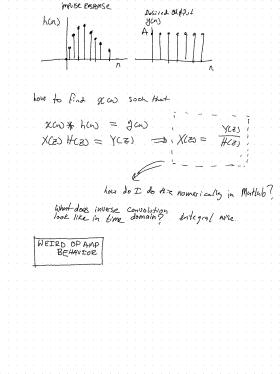 IMPULSE RESPONSE
Desired Output
h(n)
y(n)
A
n
n
how to find x(n) such that
x(n) * h(n) = y(n)
X(z) H(z) = Y(z) ⇒ X(z) = Y(z)/H(z)
how do I do this numerically in Matlab?
What does inverse convolution
look like in time domain? Integral wise
WEIRD OP AMP
BEHAVIOR